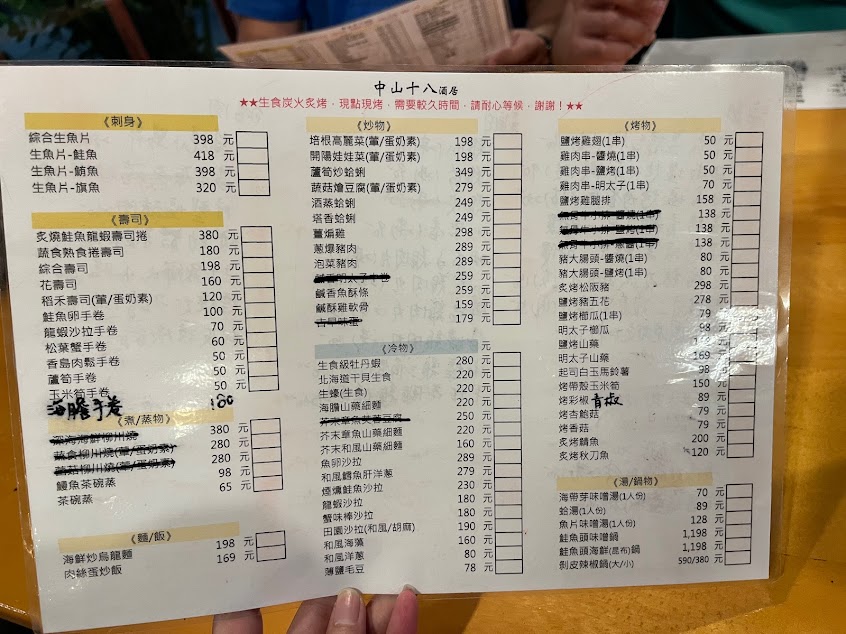 中山十八酒居
★★生食炭火炙烤，現點現烤，需要較久時間，請耐心等候，謝謝！★★
《刺身》
綜合生魚片 398 元
生魚片-鮭魚 418 元
生魚片-鮪魚 398 元
生魚片-旗魚 320 元
《壽司》
炙燒鮭魚龍蝦壽司捲 380 元
蔬食熟食捲壽司 180 元
綜合壽司 198 元
花壽司 160 元
稻禾壽司(葷/蛋奶素) 120 元
鮭魚卵手卷 100 元
龍蝦沙拉手卷 70 元
松葉蟹手卷 60 元
香島肉鬆手卷 50 元
蘆筍手卷 50 元
玉米筍手卷 50 元
海膽手卷 180
《煮/蒸物》
深海海鮮柳川燒 380 元
蔬食柳川燒(葷/蛋奶素) 280 元
蘑菇柳川燒(葷/蛋奶素) 280 元
鰻魚茶碗蒸 98 元
茶碗蒸 65 元
《麵/飯》
海鮮炒烏龍麵 198 元
肉絲蛋炒飯 169 元
《炒物》
培根高麗菜(葷/蛋奶素) 198 元
開陽娃娃菜(葷/蛋奶素) 198 元
蘆筍炒蛤蜊 349 元
蘑菇燴豆腐(葷/蛋奶素) 279 元
酒蒸蛤蜊 249 元
塔香蛤蜊 249 元
薑煸雞 298 元
蔥爆豬肉 289 元
泡菜豬肉 289 元
鹹香明太子牛卷 259 元
鹹香魚酥條 259 元
鹹酥雞軟骨 159 元
古早味蛋 179 元
《冷物》 元
生食級牡丹蝦 280 元
北海道干貝生食 220 元
生蠔(生食) 220 元
海膽山藥細麵 220 元
芥末章魚芙蓉豆腐 250 元
芥末章魚山藥細麵 220 元
芥末和風山藥細麵 160 元
魚卵沙拉 289 元
和風鱈魚肝洋蔥 279 元
煙燻鮭魚沙拉 230 元
龍蝦沙拉 180 元
蟹味棒沙拉 180 元
田園沙拉(和風/胡麻) 190 元
和風海藻 160 元
和風洋蔥 80 元
薄鹽毛豆 78 元
《烤物》
鹽烤雞翅(1串) 50 元
雞肉串-醬燒(1串) 50 元
雞肉串-鹽烤(1串) 50 元
雞肉串-明太子(1串) 70 元
鹽烤雞腿排 158 元
無骨牛小排-醬燒(1串) 138 元
無骨牛小排-鹽烤(1串) 138 元
無骨牛小排-蔥鹽(1串) 138 元
豬大腸頭-醬燒(1串) 80 元
豬大腸頭-鹽烤(1串) 80 元
炙烤松阪豬 298 元
鹽烤豬五花 278 元
鹽烤櫛瓜(1串) 79 元
明太子櫛瓜 98 元
鹽烤山藥 元
明太子山藥 169 元
起司白玉馬鈴薯 98 元
烤帶殼玉米筍 150 元
烤彩椒 青椒 89 元
烤杏鮑菇 79 元
烤香菇 79 元
炙烤鯖魚 200 元
炙烤秋刀魚 120 元
《湯/鍋物》
海帶芽味噌湯(1人份) 70 元
蛤湯(1人份) 89 元
魚片味噌湯(1人份) 128 元
鮭魚頭味噌鍋 1,198 元
鮭魚頭海鮮(昆布)鍋 1,198 元
剝皮辣椒鍋(大/小) 590/380 元